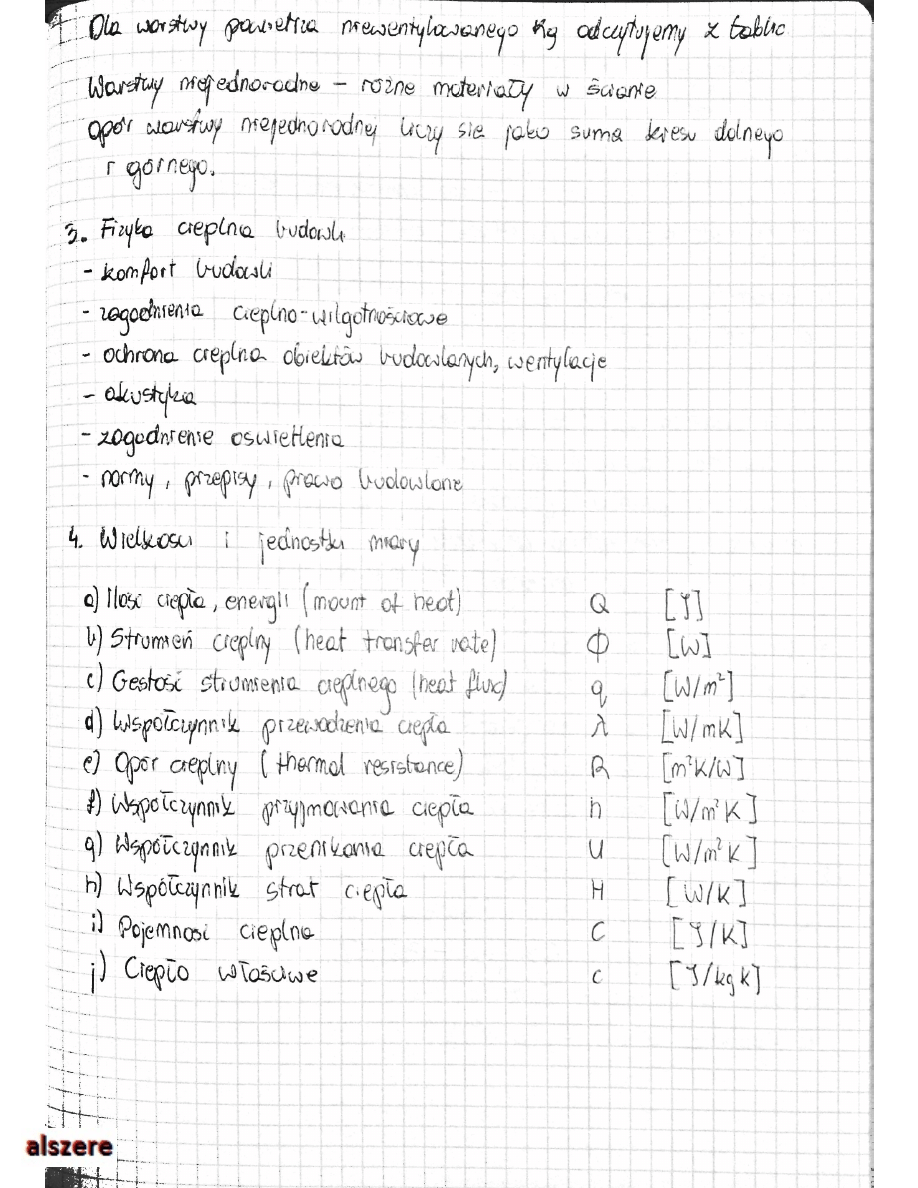 Dla warstwy powietrza niewentylowanego Rg odczytujemy z tablic
Warstwy niejednorodne – różne materiały w ścianie
opór warstwy niejednorodnej liczy sie jako suma kresu dolnego
i górnego.
3. Fizyka cieplna budowli
- komfort budowli
- zagadnienia cieplno-wilgotnościowe
- ochrona cieplna obiektów budowlanych, wentylacje
- akustyka
- zagadnienie oswietlenia
- normy, przepisy, prawo budowlane
4. Wielkosci i jednostki miary
a) Ilosć ciepła, energii (mount of heat) Q [J]
b) Strumień cieplny (heat transfer rate) Φ [W]
c) Gestość strumienia cieplnego (heat flux) q [W/m²]
d) Współczynnik przewodzenia ciepła λ [W/mK]
e) Opór cieplny (thermal resistance) R [m²K/W]
f) Współczynnik przyjmowania ciepła h [W/m²K]
g) Współczynnik przenikania ciepła U [W/m²K]
h) Współczynnik strat ciepła H [W/K]
i) Pojemność cieplna C [J/K]
j) Ciepło właściwe c [J/kgK]
alszere